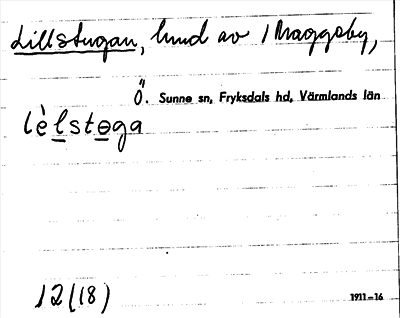 Lillstugan, hmd av 1 Maggeby,
Ö. Sunne sn, Fryksdals hd, Värmlands län
lèlstøga
12 (18)
1911–16